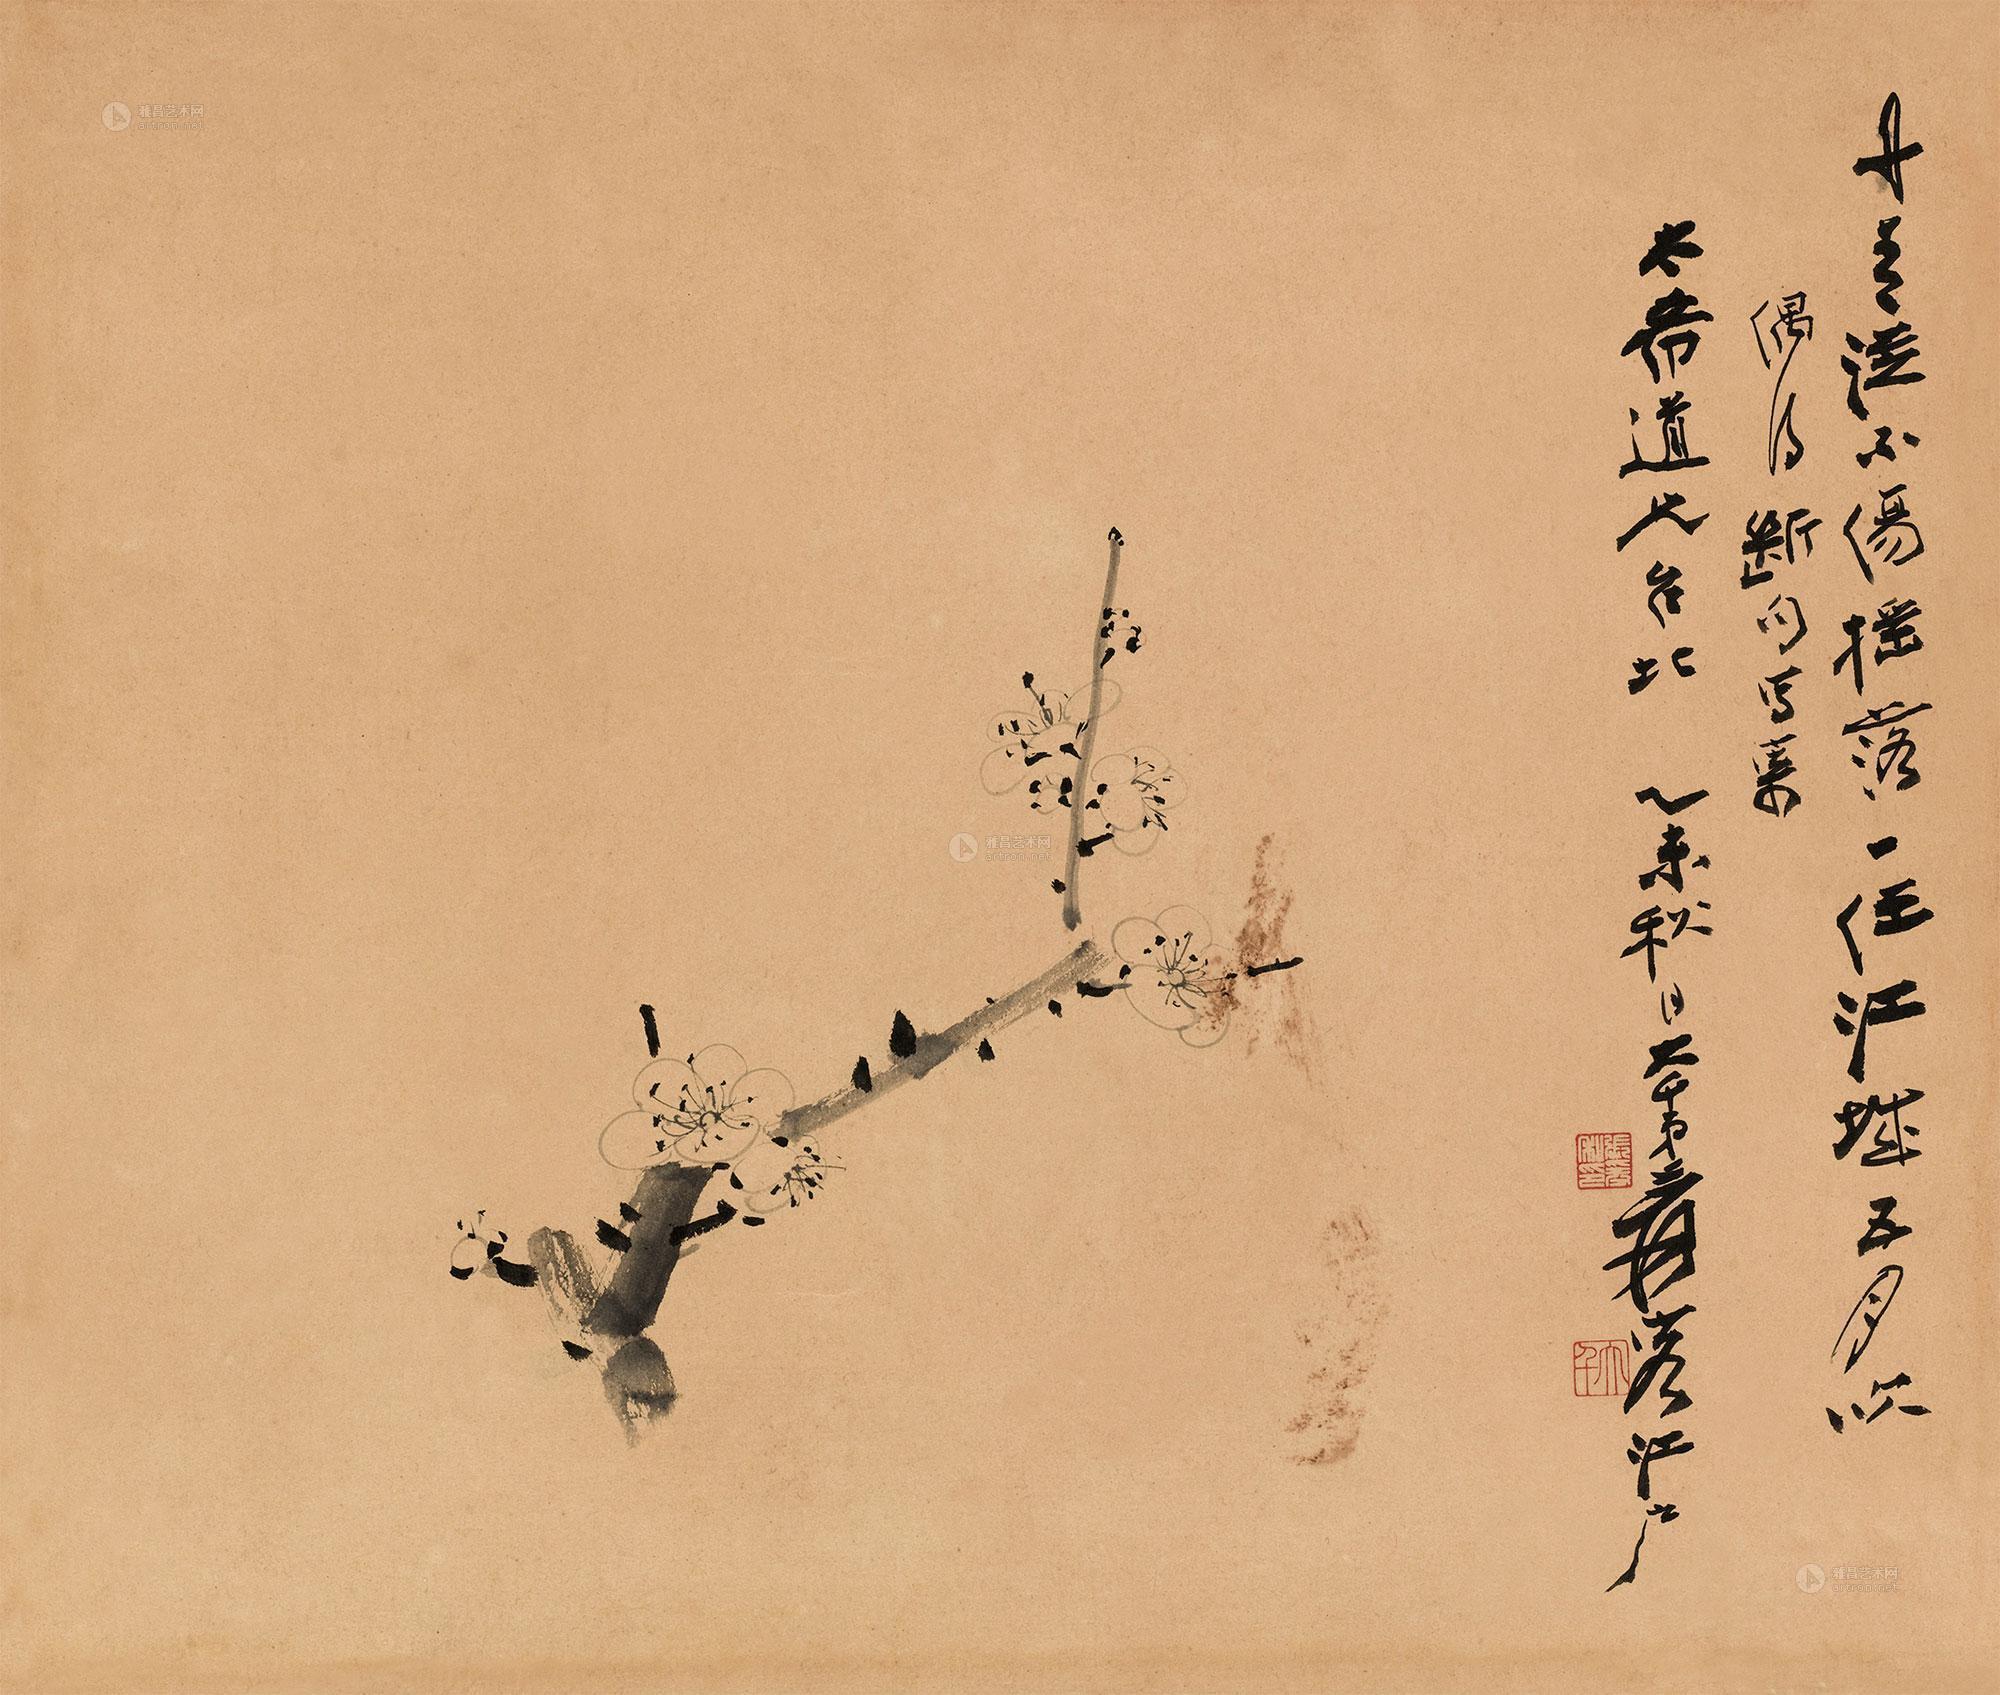 丹青從不傷搖落一任江城五月吹
偶得斷句寫寄
太希道兄台北 乙未秋日大千弟張爰落江戶
大千
雅昌艺术网
artron.net
雅昌艺术网
artron.net
雅昌艺术网
artron.net